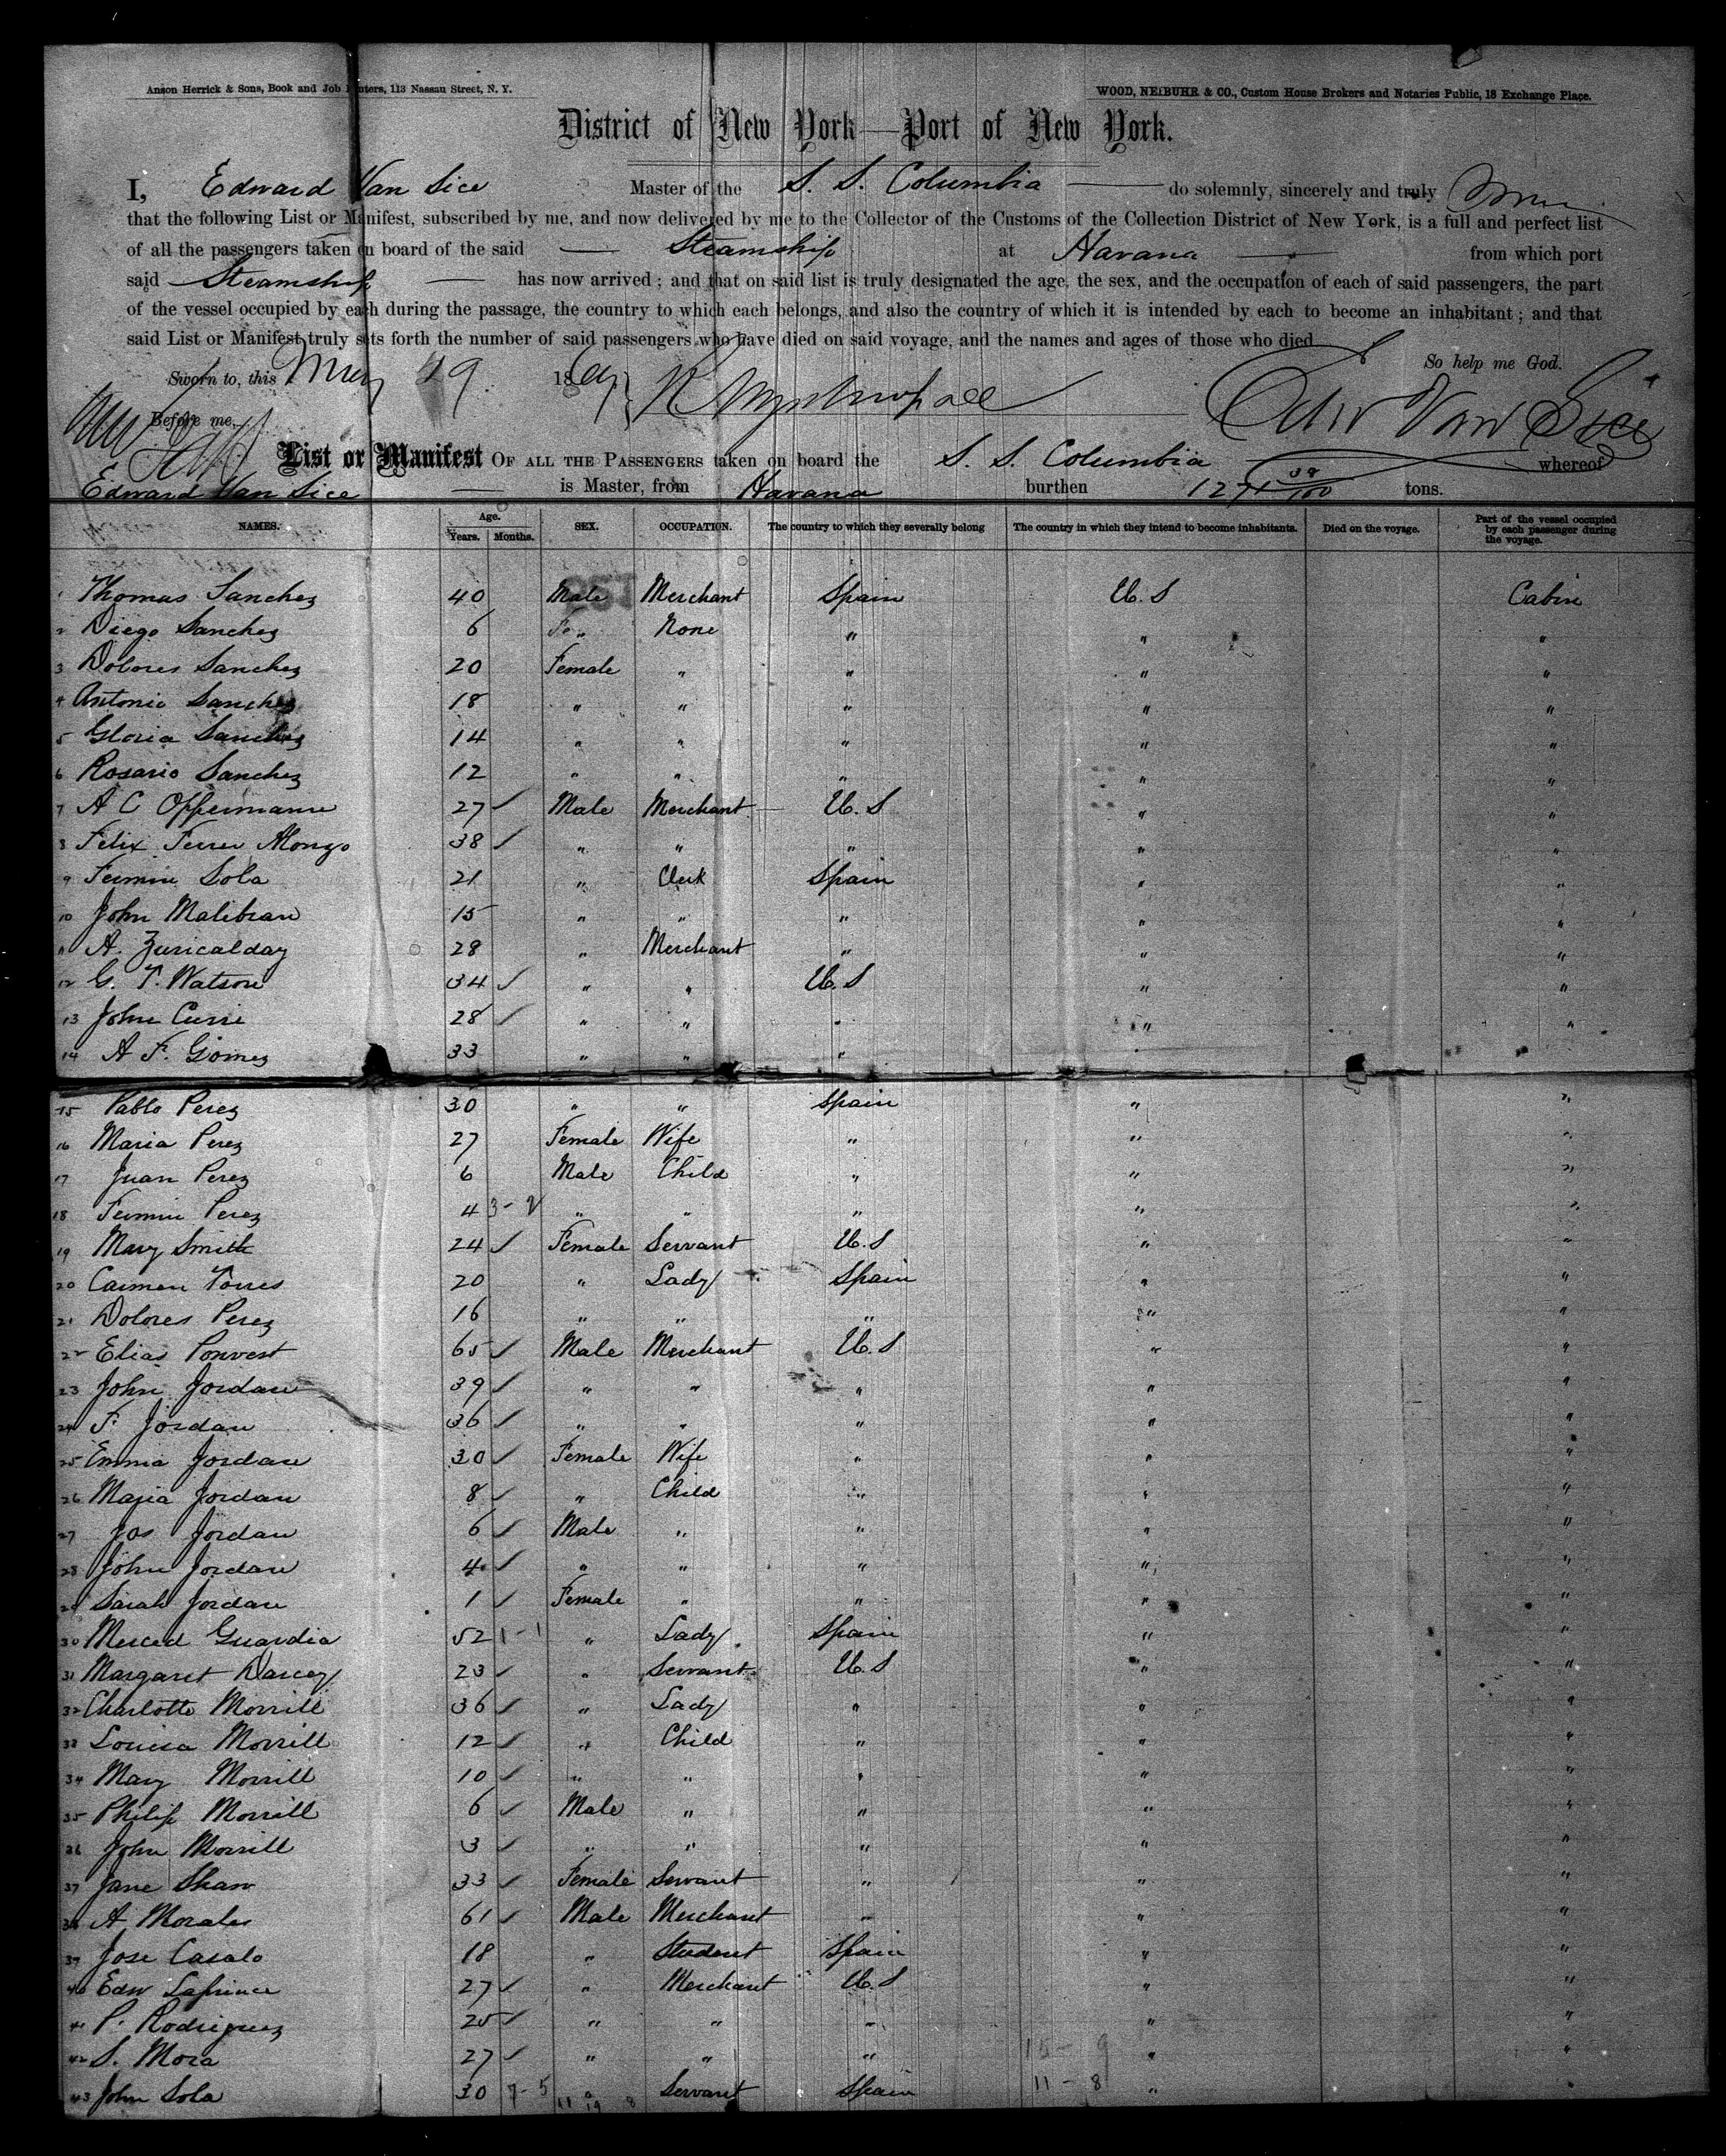 Anson Herrick & Sons, Book and Job Printers, 113 Nassau Street, N. Y.
WOOD, NEIBUHR & CO., Custom House Brokers and Notaries Public, 18 Exchange Place.
District of New York—Port of New York.
I, Edward Van Sice Master of the S. S. Columbia do solemnly, sincerely and truly
that the following List or Manifest, subscribed by me, and now delivered by me to the Collector of the Customs of the Collection District of New York, is a full and perfect list
of all the passengers taken on board of the said Steamship at Havana from which port
said Steamship has now arrived ; and that on said list is truly designated the age, the sex, and the occupation of each of said passengers, the part
of the vessel occupied by each during the passage, the country to which each belongs, and also the country of which it is intended by each to become an inhabitant ; and that
said List or Manifest truly sets forth the number of said passengers who have died on said voyage, and the names and ages of those who died
So help me God.
Sworn to, this May 19 1869
Before me, Edw Van Sice
List or Manifest OF ALL THE PASSENGERS taken on board the S. S. Columbia whereof
Edward Van Sice is Master, from Havana burthen tons.
NAMES. Age. Years. Months. SEX. OCCUPATION. The country to which they severally belong The country in which they intend to become inhabitants. Died on the voyage. Part of the vessel occupied by each passenger during the voyage.
1 Thomas Sanchez 40 Male Merchant Spain U. S Cabin
2 Diego Sanchez 6 " None " " "
3 Dolores Sanchez 20 Female " " " "
4 Antonia Sanchez 18 " " " " "
5 Gloria Sanchez 14 " " " " "
6 Rosario Sanchez 12 " " " " "
7 A C Oppermann 27 ✓ Male Merchant U. S " "
8 Felix Ferrer Alonzo 38 ✓ " " " " "
9 Fermin Sola 21 " Clerk Spain " "
10 John Malibran 15 " " " " "
11 A. Zuricalday 28 " Merchant " " "
12 G. T. Watson 34 ✓ " " U. S " "
13 John Curri 28 ✓ " " " " "
14 A F. Gomez 33 " " " "
15 Pablo Perez 30 " " Spain " "
16 Maria Perez 27 Female Wife " " "
17 Juan Perez 6 Male Child " " "
18 Fermin Perez 4 3-2 " " " " "
19 Mary Smith 24 ✓ Female Servant U. S " "
20 Carmen Torres 20 " Lady Spain " "
21 Dolores Perez 16 " " " " "
22 Elias Ponvert 65 ✓ Male Merchant U. S " "
23 John Jordan 39 ✓ " " " " "
24 F. Jordan 36 ✓ " " " " "
25 Emma Jordan 30 ✓ Female Wife " " "
26 Maria Jordan 8 ✓ " Child " " "
27 Jos Jordan 6 ✓ Male " " " "
28 John Jordan 4 ✓ " " " " "
29 Sarah Jordan 1 ✓ Female " " " "
30 Merced Guardia 52 1-1 " Lady Spain " "
31 Margaret Darcey 23 ✓ " Servant U. S " "
32 Charlotte Morrill 36 ✓ " Lady " " "
33 Louisa Morrill 12 ✓ " Child " " "
34 Mary Morrill 10 ✓ " " " " "
35 Philip Morrill 6 ✓ Male " " " "
36 John Morrill 3 ✓ " " " " "
37 Jane Shaw 33 ✓ Female Servant " " "
38 A Morales 61 ✓ Male Merchant " " "
39 Jose Casalo 18 " Student Spain " "
40 Edw Laprince 27 ✓ " Merchant U. S " "
41 P. Rodriguez 25 ✓ " " " " "
42 S. Mora 27 ✓ " " " " "
43 John Sola 30 7-5 " Servant Spain 11-8 " "